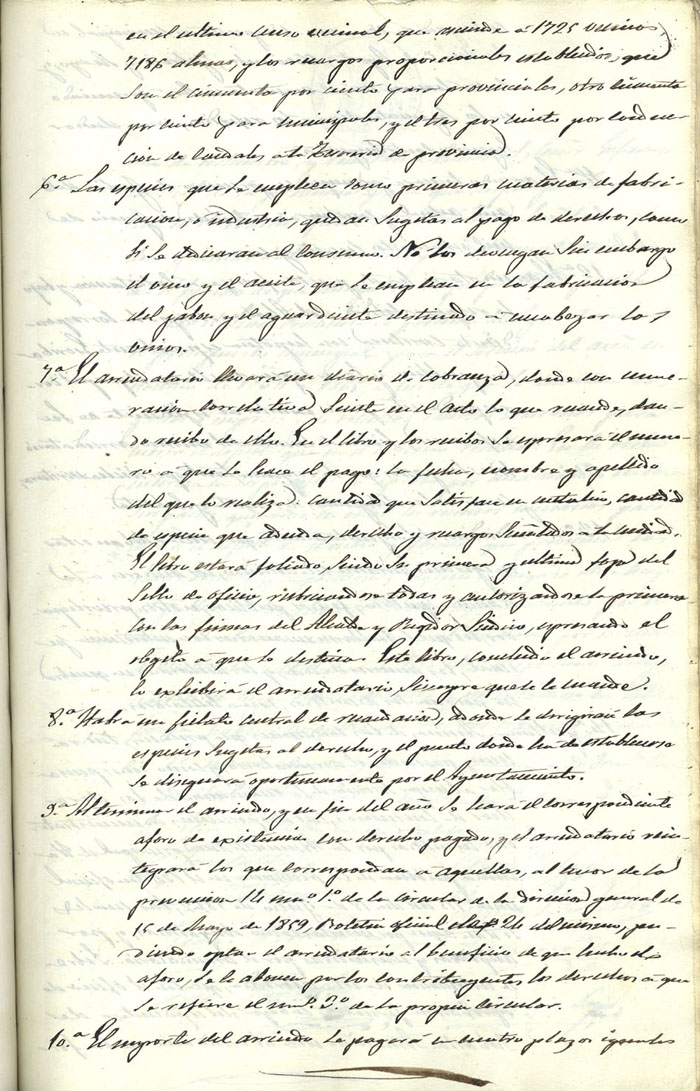 en el ultimo censo vecinal, que asciende á 1725 vecinos,
7186 almas, y los recargos proporcionales establecidos, que
son el cincuenta por ciento para provinciales, otro cincuenta
por ciento para municipales, y el tres por ciento por conduc-
cion de caudales á la Tesoreria de provincia.
6.ª Las especies que se emplean como primeras materias de fabri-
cacion, ó industria, quedan sugetas al pago de derechos, como
si se dedicaran al consumo. No los devengan sin embargo
el vino y el aceite, que se emplean en la fabricacion
del jabon y el aguardiente destinado á encabezar los
vinos.
7.ª El arrendatario llevará un diario de cobranza, donde con nume-
racion correlativa siente en el acto lo que recaude, dan-
do recibo de ello. En el libro y los recibos se espresará el nume-
ro á que se hace el pago: la fecha, nombre y apellido
del que lo realiza: cantidad que satisface en metalico, cantidad
de especie que adeuda, derecho y recargos señalados a la unidad.
El libro estará foliado, siendo su primera y ultima foja del
sello de oficio, rubricandose todas y autorizandose la primera
con las firmas del Alcalde y Regidor Sindico, espresando el
objeto á que se destina. Este libro, concluido el arriendo,
lo exhibirá el arrendatario siempre que se le mande.
8.ª Habrá un fielato central de recaudacion, adonde se dirigirán las
especies sugetas al derecho, y el punto donde ha de establecerse
se designará oportunamente por el Ayuntamiento.
9.ª Al terminar el arriendo, y en fin del año se hará el correspondiente
aforo de existencias con derecho pagado, y el arrendatario rein-
tegrará los que correspondan á aquellas, al tenor de la
prevencion 14 num.º 1.º de la circular de la direccion general de
15 de Mayo de 1859, Boletin oficial del 24 del mismo, pu-
diendo optar el arrendatario al beneficio de que hecho el
aforo, se le abonen por los contribuyentes los derechos á que
se refiere el num.º 2.º de la propia circular.
10.ª El importe del arriendo se pagará en cuatro plazos iguales